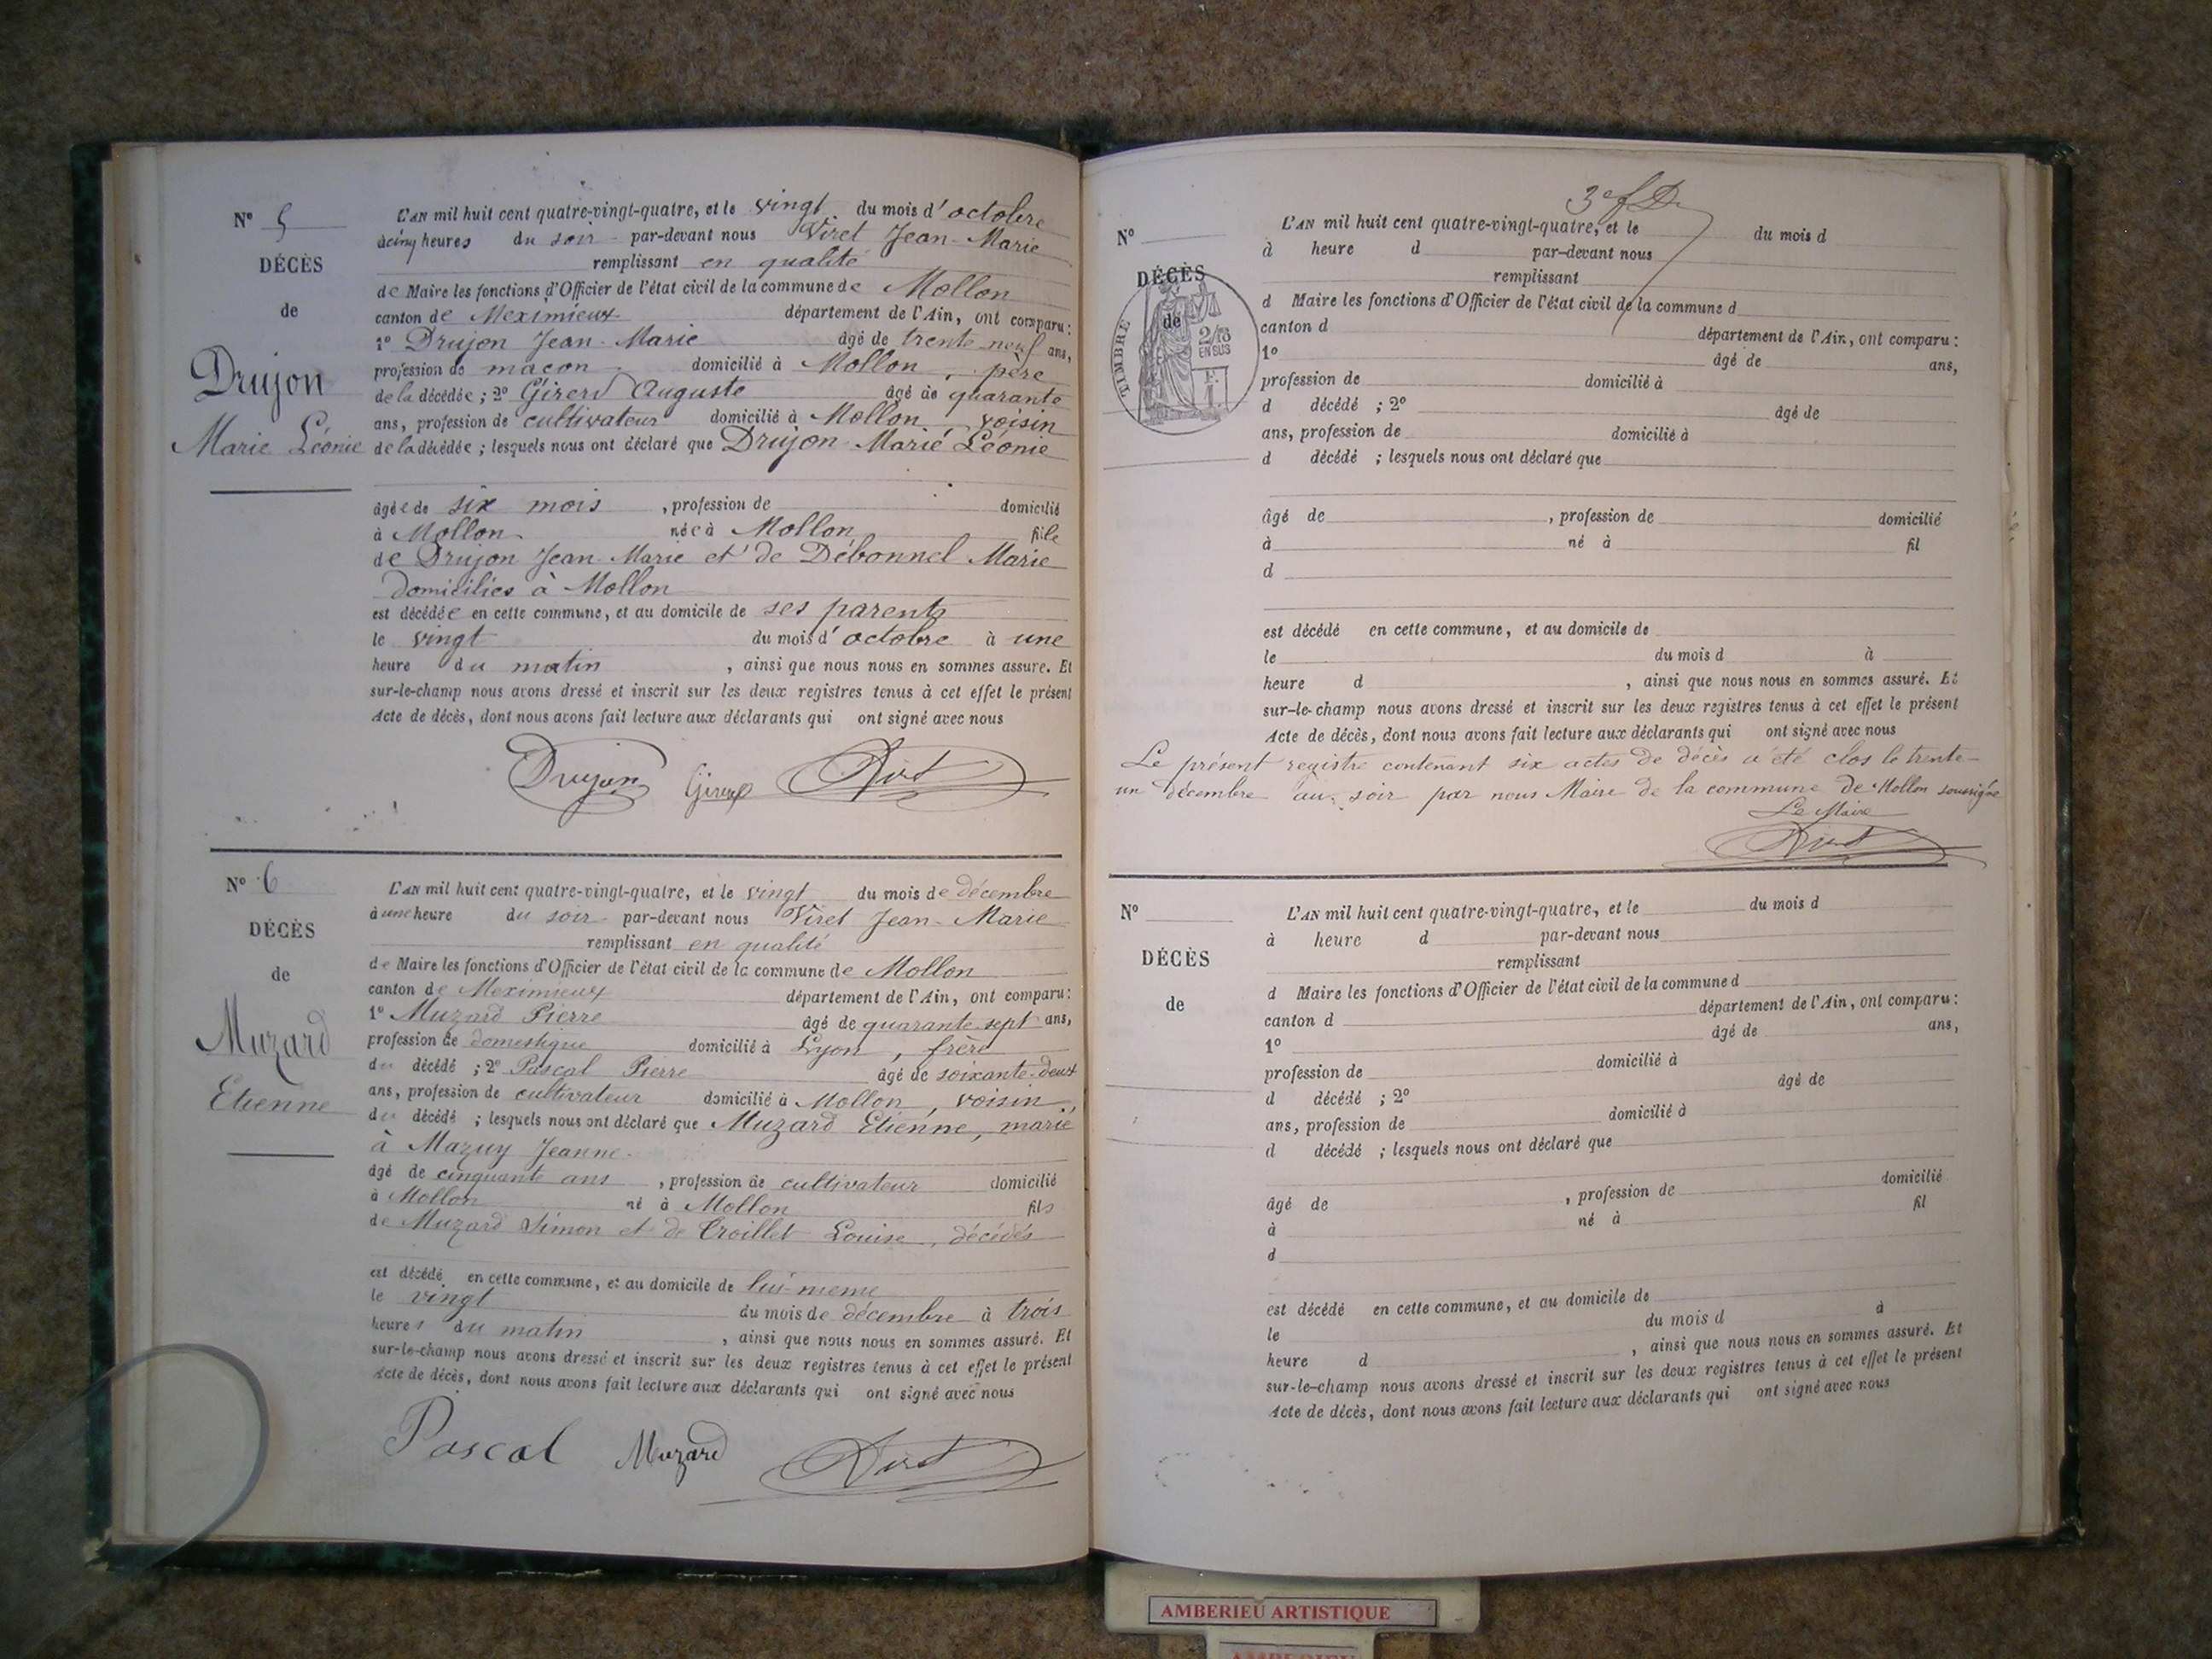 N° 5
DÉCÈS
de
Drujon
Marie Léonie
L'AN mil huit cent quatre-vingt-quatre, et le vingt du mois d'octobre
à cinq heures du soir par-devant nous Viret Jean-Marie
remplissant en qualité
de Maire les fonctions d'Officier de l'état civil de la commune de Mollon
canton de Meximieux département de l'Ain, ont comparu :
1° Drujon Jean-Marie âgé de trente-neuf ans,
profession de maçon domicilié à Mollon, père
de la décédée ; 2° Girerd Auguste âgé de quarante
ans, profession de cultivateur domicilié à Mollon, voisin
de la décédée ; lesquels nous ont déclaré que Drujon Marie Léonie
âgée de six mois , profession de domicilié
à Mollon née à Mollon fille
de Drujon Jean-Marie et de Débonnel Marie
domiciliés à Mollon
est décédée en cette commune, et au domicile de ses parents
le vingt du mois d'octobre à une
heure du matin , ainsi que nous nous en sommes assuré. Et
sur-le-champ nous avons dressé et inscrit sur les deux registres tenus à cet effet le présent
Acte de décès, dont nous avons fait lecture aux déclarants qui ont signé avec nous
Drujon Girerd Viret
N° 6
DÉCÈS
de
Muzard
Etienne
L'AN mil huit cent quatre-vingt-quatre, et le vingt du mois de décembre
à une heure du soir par-devant nous Viret Jean-Marie
remplissant en qualité
de Maire les fonctions d'Officier de l'état civil de la commune de Mollon
canton de Meximieux département de l'Ain, ont comparu :
1° Muzard Pierre âgé de quarante sept ans,
profession de domestique domicilié à Lyon, frère
du décédé ; 2° Pascal Pierre âgé de soixante-deux
ans, profession de cultivateur domicilié à Mollon, voisin
du décédé ; lesquels nous ont déclaré que Muzard Etienne, marié
à Mazuy Jeanne
âgé de cinquante ans , profession de cultivateur domicilié
à Mollon né à Mollon fils
de Muzard Simon et de Croillet Louise, décédés
est décédé en cette commune, et au domicile de lui-meme
le vingt du mois de décembre à trois
heures du matin , ainsi que nous nous en sommes assuré. Et
sur-le-champ nous avons dressé et inscrit sur les deux registres tenus à cet effet le présent
Acte de décès, dont nous avons fait lecture aux déclarants qui ont signé avec nous
Pascal Muzard Viret
3e f
N°
DÉCÈS
de
TIMBRE
2/10
EN SUS
L'AN mil huit cent quatre-vingt-quatre, et le du mois d
à heure d par-devant nous
remplissant
d Maire les fonctions d'Officier de l'état civil de la commune d
canton d département de l'Ain, ont comparu :
1° âgé de ans,
profession de domicilié à
d décédé ; 2° âgé de
ans, profession de domicilié à
d décédé ; lesquels nous ont déclaré que
âgé de , profession de domicilié
à né à fil
d
est décédé en cette commune, et au domicile de
le du mois d à
heure d , ainsi que nous nous en sommes assuré. Et
sur-le-champ nous avons dressé et inscrit sur les deux registres tenus à cet effet le présent
Acte de décès, dont nous avons fait lecture aux déclarants qui ont signé avec nous
Le présent registre contenant six actes de décès a été clos le trente-
un décembre au soir par nous Maire de la commune de Mollon soussigné
Le Maire
Viret
N°
DÉCÈS
de
L'AN mil huit cent quatre-vingt-quatre, et le du mois d
à heure d par-devant nous
remplissant
d Maire les fonctions d'Officier de l'état civil de la commune d
canton d département de l'Ain, ont comparu :
1° âgé de ans,
profession de domicilié à
d décédé ; 2° âgé de
ans, profession de domicilié à
d décédé ; lesquels nous ont déclaré que
âgé de , profession de domicilié
à né à fil
d
est décédé en cette commune, et au domicile de
le du mois d à
heure d , ainsi que nous nous en sommes assuré. Et
sur-le-champ nous avons dressé et inscrit sur les deux registres tenus à cet effet le présent
Acte de décès, dont nous avons fait lecture aux déclarants qui ont signé avec nous
AMBERIEU ARTISTIQUE
AMBERIEU